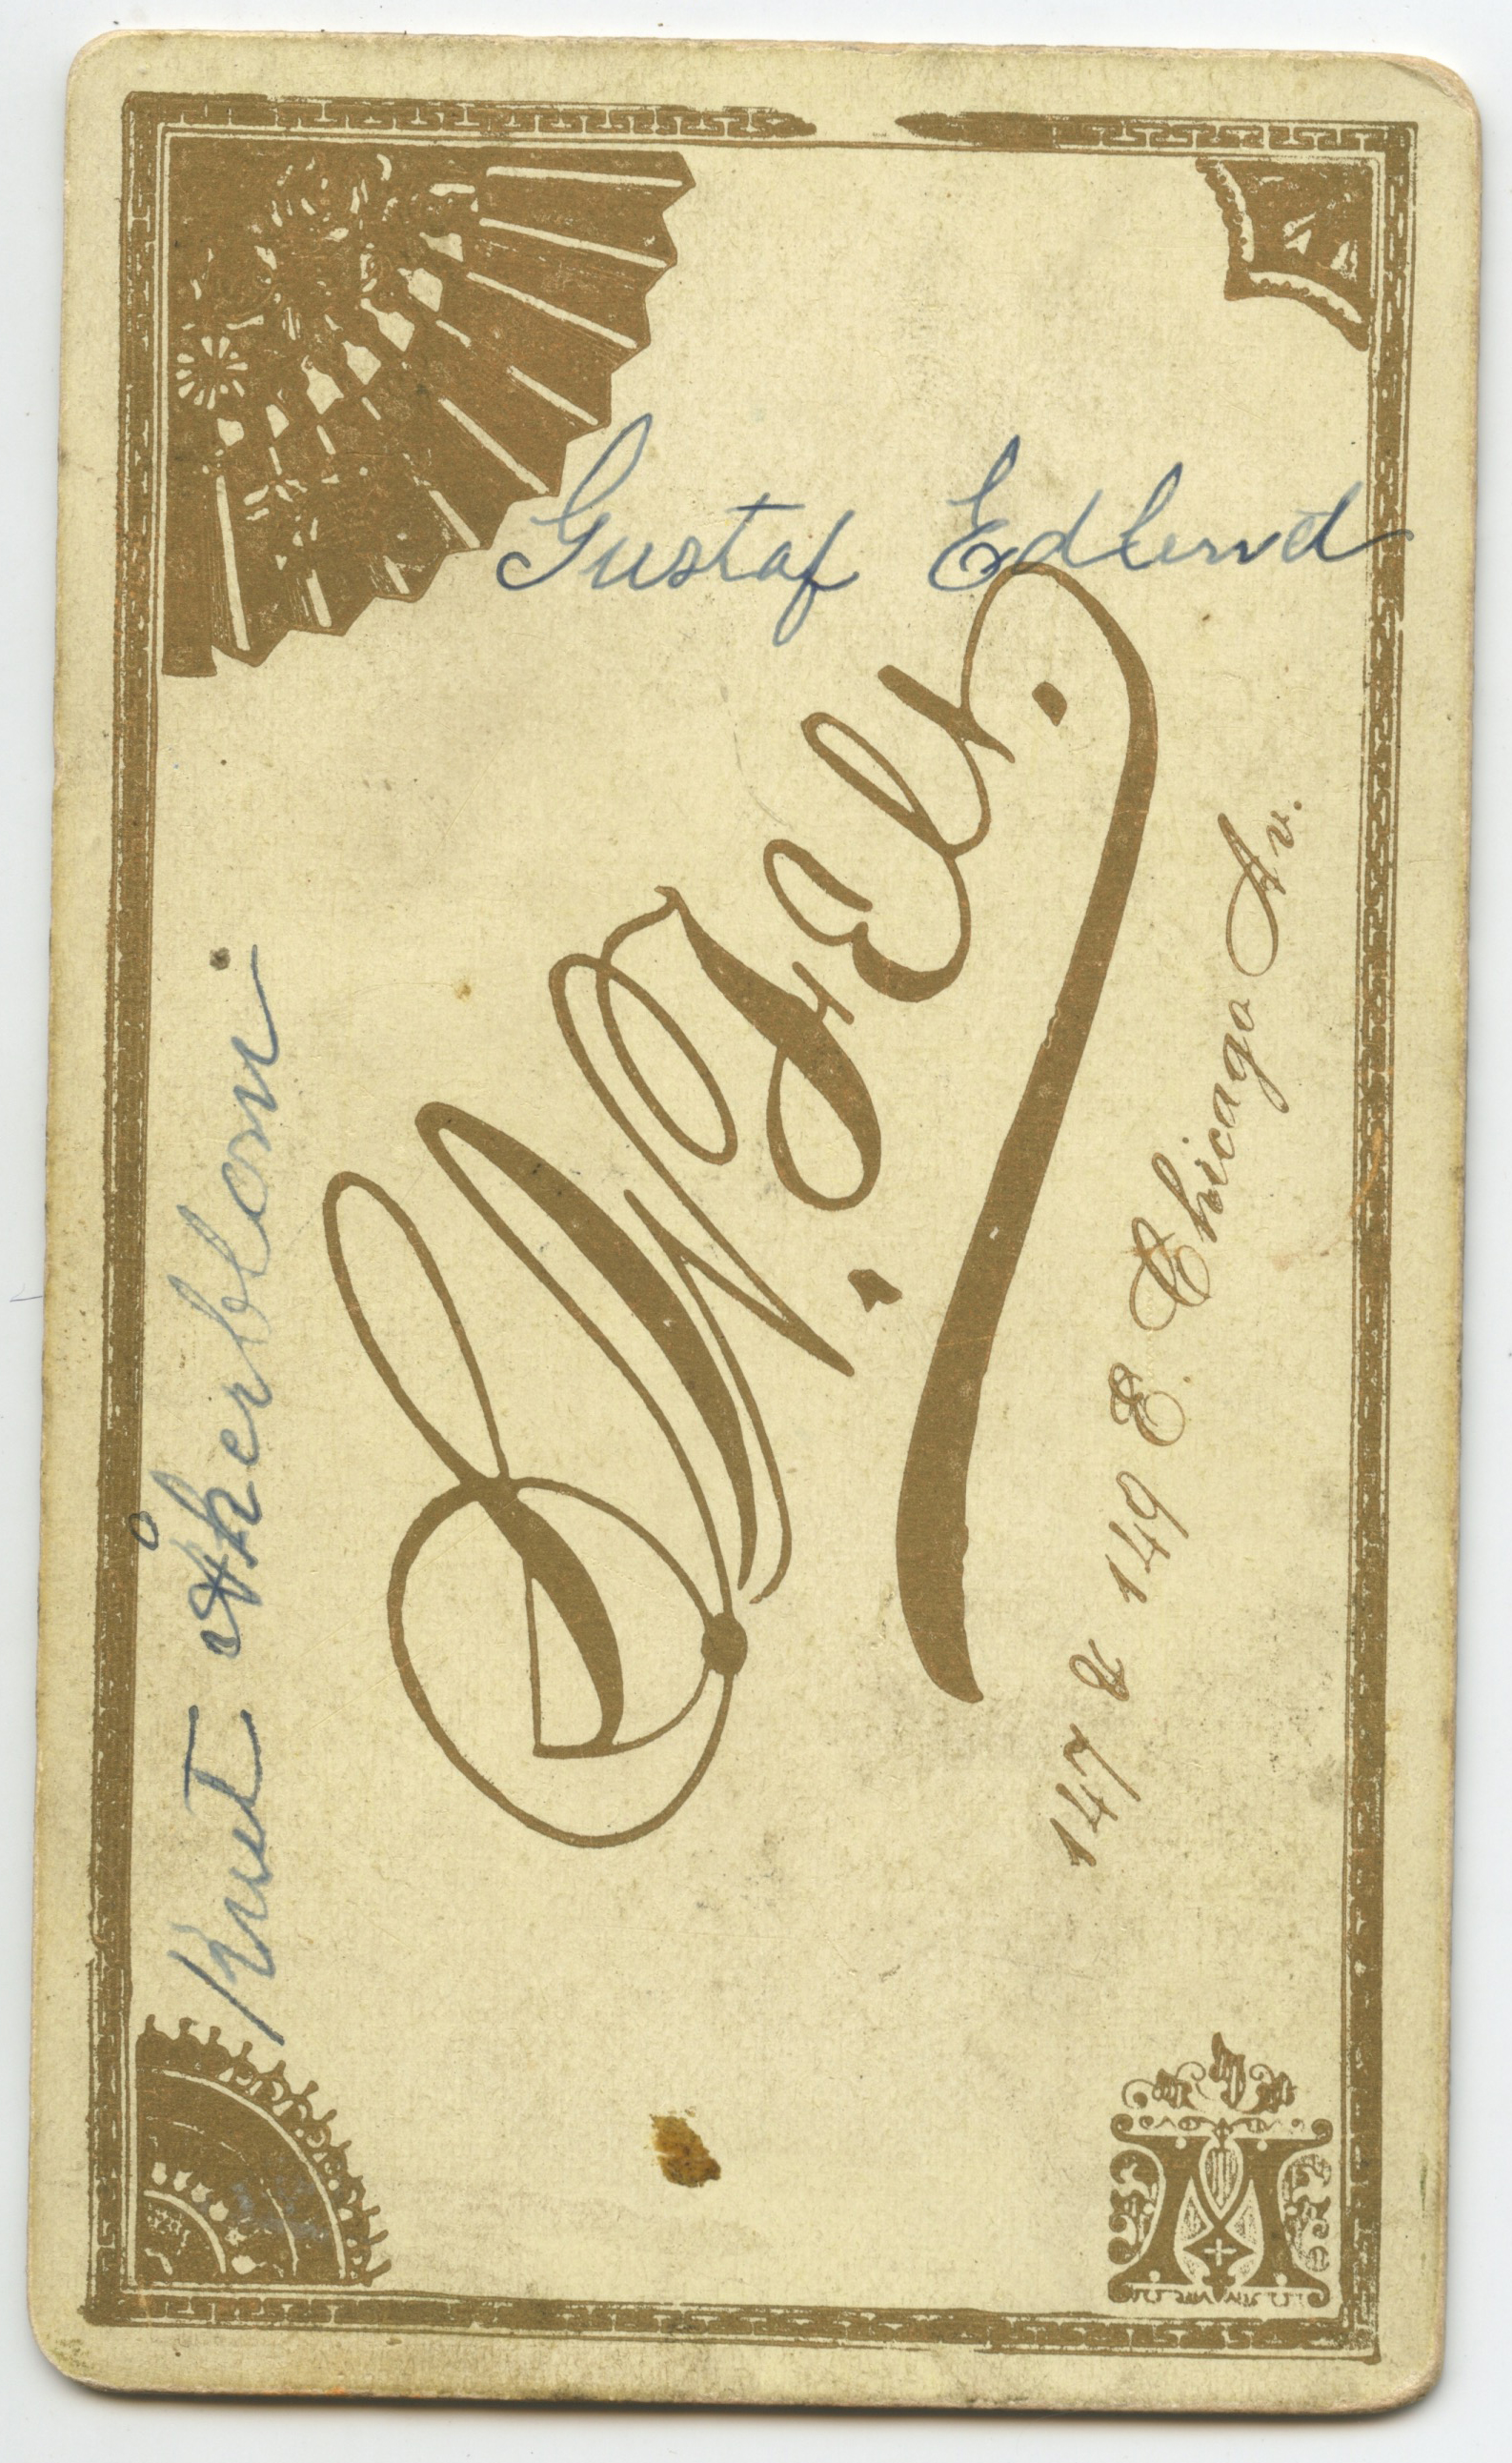 Gustaf Edlund
Knut Åkerblom
147 & 149 E. Chicago Av.